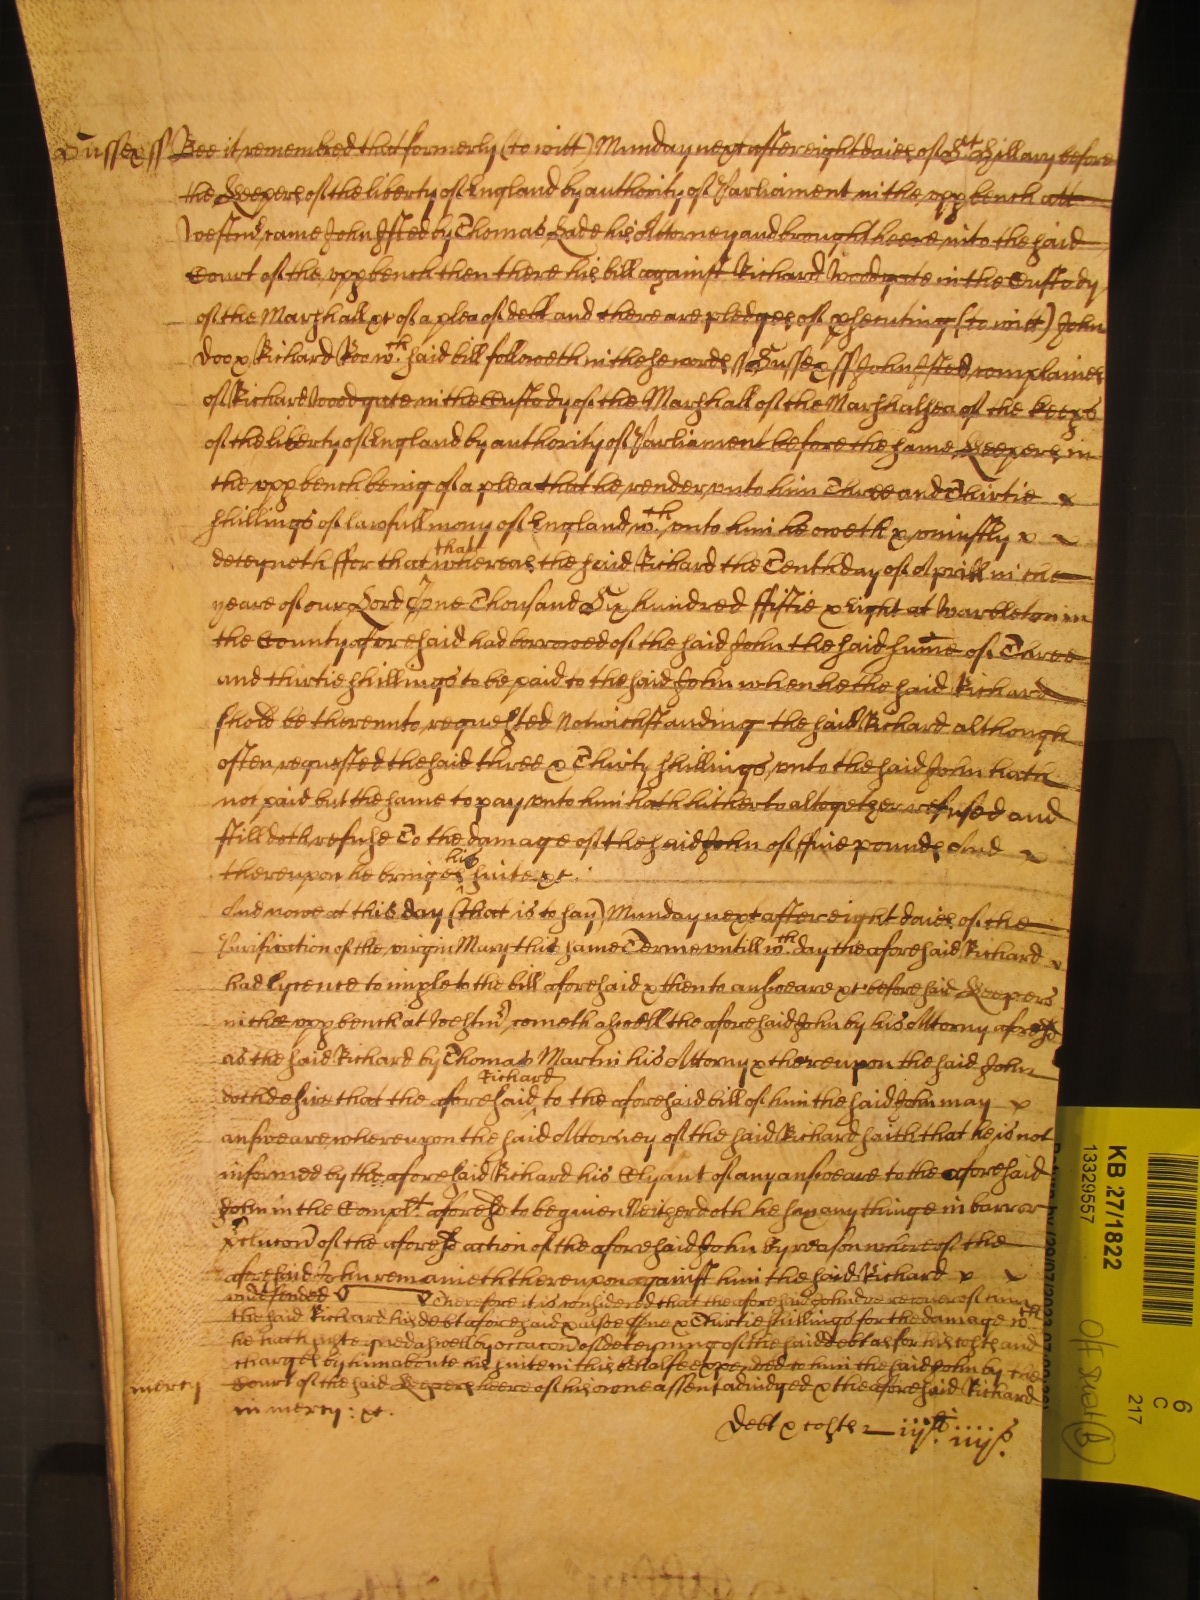 Sussex ss Bee it remembred that formerly (to witt) Munday next after eight daies of St Hillary before
the Keepers of the liberty of England by authority of Parliament in the upp bench att
Westmr came John Isted by Thomas Lade his Attorney and brought heere into the said
Court of the upp bench then there his bill against Richard Woodgate in the Custody
of the Marshall &c of a plea of debt and there are pledges of psecuting (to witt) John
Doo & Richard Roo wch said bill followeth in these words ss Sussex ss John Isted complaines
of Richard Woodgate in the Custody of the Marshall of the Marshalsea of the Keeps
of the liberty of England by authority of Parliament before the same Keepers in
the upp bench being of a plea that he render unto him Three and Thirtie
shillings of lawfull mony of England wch unto him he oweth & uniustly
deteyneth ffor that that whereas the said Richard the Tenth day of Aprill in the
yeare of our Lord One Thousand Six hundred ffiftie & Eight at Warbleton in
the County aforesaid had borrowed of the said John the said sume of Three
and thirtie shillings to be paid to the said John when he the said Richard
shold be thereunto requested Notwithstanding the said Richard although
often requested the said three & Thirty shillings unto the said John hath
not paid but the same to pay unto him hath hitherto altogether refused and
still doth refuse To the damage of the said John of ffive pounds And
thereupon he bringes his suite &c.
And nowe at this day (that is to say) Munday next after eight daies of the
Purification of the virgin Mary this same Terme untill wch day the aforesaid Richard
had lycence to imple to the bill aforesaid & then to answeare &c before said Keepers
in the upp bench at Westmr cometh aswell the aforesaid John by his Attorny aforesd
as the said Richard by Thomas Martin his Attorny & thereupon the said John
doth desire that the aforesaid Richard to the aforesaid bill of him the said John may
answeare whereupon the said Attorney of the said Richard saith that he is not
informed by the aforesaid Richard his Clyant of any answeare to the aforesaid
John in the Complt aforesd to be given Neither doth he say any thinge in barr or
pclucon of the aforesd action of the aforesaid John By reason whereof the
aforesaid John remanieth thereupon against him the said Richard
undefended Therefore it is considered that the aforesaid John doe recover of
the said Richard his debt aforesaid & alsoe ffive & Thirtie shillings for the damage wch
he hath susteyned aswell by occacon of deteyning of the said debt as for his costs and
charges by him about his suite in this behalfe expended to him the said John by the
mercy Court of the said Keepers heere of his owne assent adiudged & the aforesaid Richard
in mercy : &c.
Debt & costs iijli iiijs.
KB 27/1822
13329557
6
C
217